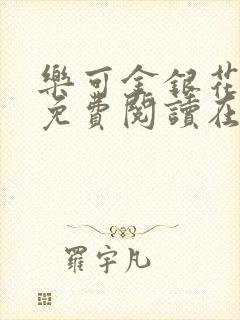 樂可金銀花
免費閱讀在
羅宇凡